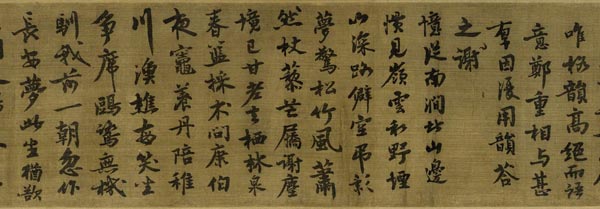 唯格韻高絕而語
意鄭重相與甚
厚因復用韻荅
之謝
憶從南澗北山邊
慣見嶺雲和野煙
山深路僻空弔影
夢驚松竹風蕭
然杖藜芒屩謝塵
境已甘老去棲林泉
春籃採朮問康伯
夜竈養丹陪稚
川漁樵每笑坐
爭席鷗鷺無機
馴我前一朝忽作
長安夢此生猶欲